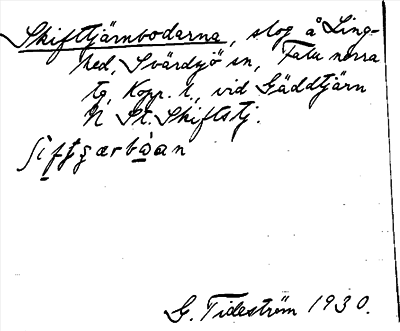 Skiftjärnbodarna, slog å Ling-
hed, Svärdsjö sn, Falu norra
tg, Kopp. l., vid Gäddtjärn
N St. Skiftstj.
G. Tideström 1930.